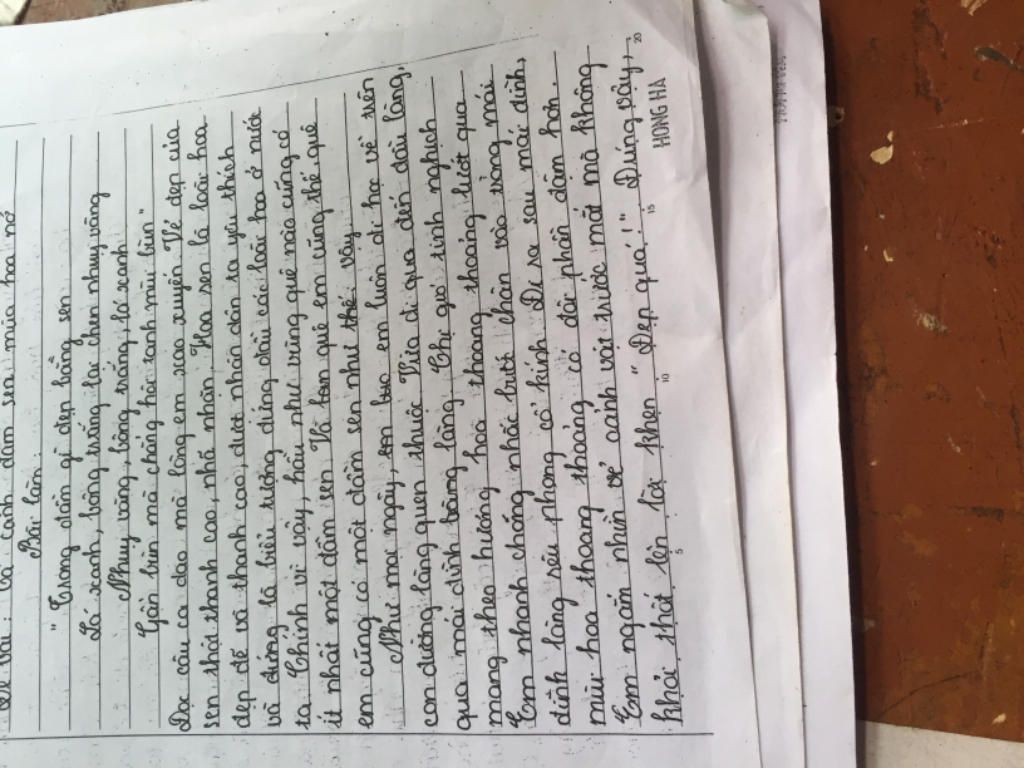 Đề bài: Tả cảnh đầm sen mùa hoa nở
Bài làm.
"Trong đầm gì đẹp bằng sen
Lá xanh, bông trắng lại chen nhụy vàng
Nhụy vàng, bông trắng, lá xanh
Gần bùn mà chẳng hôi tanh mùi bùn"
Đọc câu ca dao mà lòng em xao xuyến. Vẻ đẹp của
sen thật thanh cao, nhã nhặn. Hoa sen là loài hoa
đẹp đẽ và thanh cao, được nhân dân ta yêu thích
và đúng là biểu tượng đứng đầu các loài hoa ở nước
ta. Chính vì vậy, hầu như vùng quê nào cũng có
ít nhất một đầm sen. Và làng quê em cũng thế quê
em cũng có một đầm sen như thế vậy.
Như mọi ngày, em luôn đi học về trên
con đường làng quen thuộc. Vừa đi qua đến đầu làng,
qua mái đình bằng lặng. Chị gió tinh nghịch
mang theo hương hoa thoang thoảng lướt qua.
Em nhanh chóng nhấc bước chân vào trong mái
đình làng rêu phong cổ kính. Đi ra sau mái đình,
mùi hoa thoang thoảng có đôi phần đậm hơn.
Em ngắm nhìn vẻ cảnh vật trước mắt mà không
khỏi thật lên lời khen "Đẹp quá!" Đúng vậy,
5 10 15 20
HONG HA